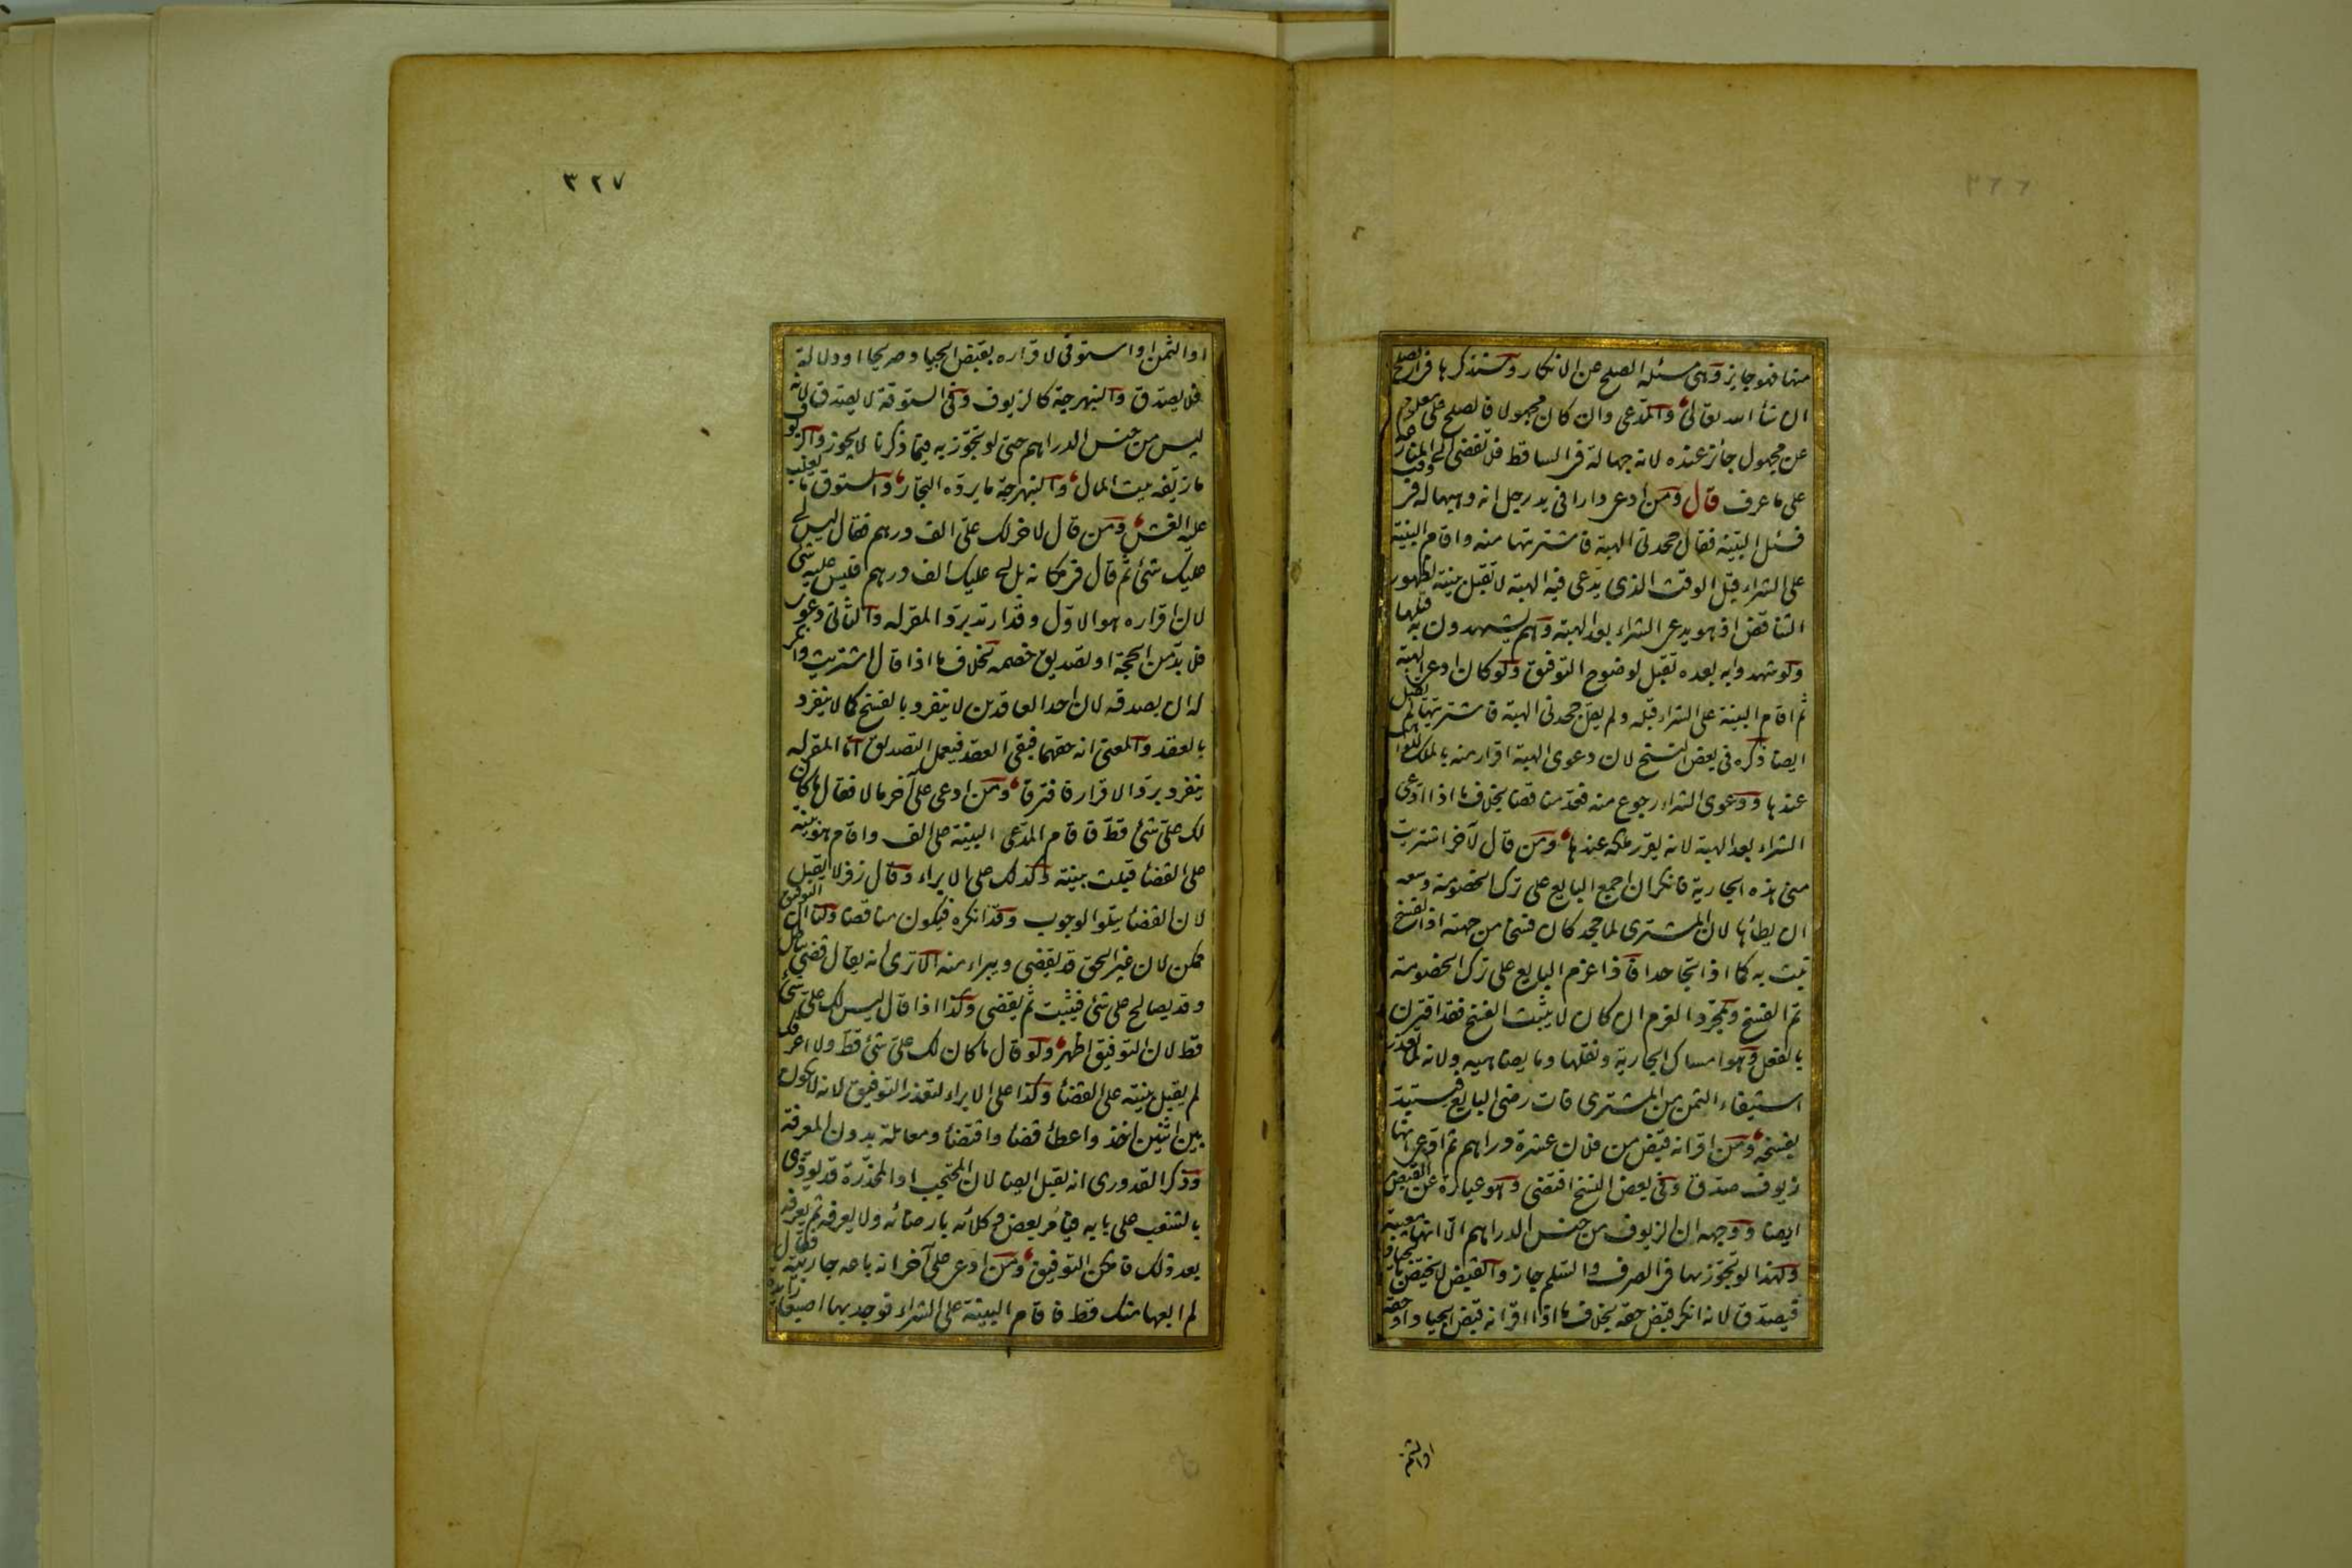 ٣٢٦
منها فهو جايز وهى مسئلة الصلح عن الانكار وسنذكرها فى الصلح
ان شاء الله تعالى والمدعى وان كان مجهولا فالصلح على معلوم
عن مجهول جائز عنده لانه جهالة فى الساقط فلا تفضى الى المنازعة
على ما عرف قال ومن ادعى دارا فى يد رجل انه وهبها له فى وقت
فسئل البينة فقال جحدنى الهبة فاشتريتها منه واقام البينة
على الشراء قبل الوقت الذى يدعى فيه الهبة لا تقبل بينته لظهور
التناقض اذ هو يدعى الشراء بعد الهبة وهم يشهدون به قبلها
ولو شهدوا به بعده تقبل لوضوح التوفيق ولو كان ادعى الهبة
ثم اقام البينة على الشراء قبله ولم يقل جحدنى الهبة فاشتريتها لم تقبل
ايضا ذكره فى بعض النسخ لان دعوى الهبة اقرار منه بالملك للواهب
عندها ودعوى الشراء رجوع منه فعد مناقضا بخلاف ما اذا ادعى
الشراء بعد الهبة لانه يقرر ملكه عندها ومن قال لآخر اشتريت
منى هذه الجارية فانكر ان اجمع البايع على ترك الخصومة وسعه
ان يطأها لان المشترى لما جحد كان فسخا من جهته اذ الفسخ
يثبت به كما اذا تجاحدا فاذا عزم البايع على ترك الخصومة
تم الفسخ وبمجرد العزم ان كان لا يثبت الفسخ فقد اقترن
بالفعل وهو امساك الجارية ونقلها وما يضاهيه ولانه لما تعذر
استيفاء الثمن من المشترى فات رضى البايع فيستبد
بفسخه ومن اقر انه قبض من فلان عشرة دراهم ثم ادعى انها
زيوف صدق وفى بعض النسخ اقتضى وهو عبارة عن القبض
ايضا ووجهه ان الزيوف من جنس الدراهم الا انها معيبة
ولهذا لو تجوز بها فى الصرف والسلم جاز والقبض لا يختص بالجياد
فيصدق لانه انكر قبض حقه بخلاف ما اذا اقر انه قبض الجياد او حقه
او الثمن
٣٢٧
او الثمن او استوفى لاقراره بقبض الجياد صريحا او دلالة
فلا يصدق والنبهرجة كالزيوف وفى الستوقة لا يصدق لانه
ليس من جنس الدراهم حتى لو تجوز به فيما ذكرنا لا يجوز والزيوف
ما زيفه بيت المال والنبهرجة ما يرده التجار والستوق ما يغلب
عليه الغش ومن قال لاخر لك على الف درهم فقال ليس لى
عليك شئ ثم قال فى مكانه بل لى عليك الف درهم فليس عليه شئ
لان اقراره هو الاول وقد ارتد برد المقر له والثانى دعوى
فلا بد من الحجة او تصديق خصمه بخلاف ما اذا قال اشتريت وانكر
له ان يصدقه لان احد العاقدين لا ينفرد بالفسخ كما لا ينفرد
بالعقد والمعنى انه حقهما فبقى العقد فيعمل التصديق اما المقر له
ينفرد برد الاقرار فافترقا ومن ادعى على آخر مالا فقال ما كان
لك على شئ قط فاقام المدعى البينة على الف واقام هو بينة
على القضاء قبلت بينته وكذلك على الابراء وقال زفر لا تقبل
لان القضاء يتلو الوجوب وقد انكره فيكون مناقضا ولنا ان التوفيق
ممكن لان غير الحق قد يقضى ويبراء منه الا ترى انه يقال قضى بباطل
وقد يصالح على شئ فيثبت ثم يقضى وكذا اذا قال ليس لك على شئ
قط لان التوفيق اظهر ولو قال ما كان لك على شئ قط ولا اعرفك
لم يقبل بينته على القضاء وكذا على الابراء لتعذر التوفيق لانه لا يكون
بين اثنين اخذ واعطاء قضاء واقتضاء ومعاملة بدون المعرفة
وذكر القدورى انه تقبل ايضا لان المحتجب او المخدرة قد يؤذى
بالشغب على بابه فيأمر بعض وكلائه بارضائه ولا يعرفه ثم يعرفه
بعد ذلك فامكن التوفيق ومن ادعى على آخر انه باعه جاريته فقال
لم ابعها منك قط فاقام البينة على الشراء فوجد بها اصبعا زايدة